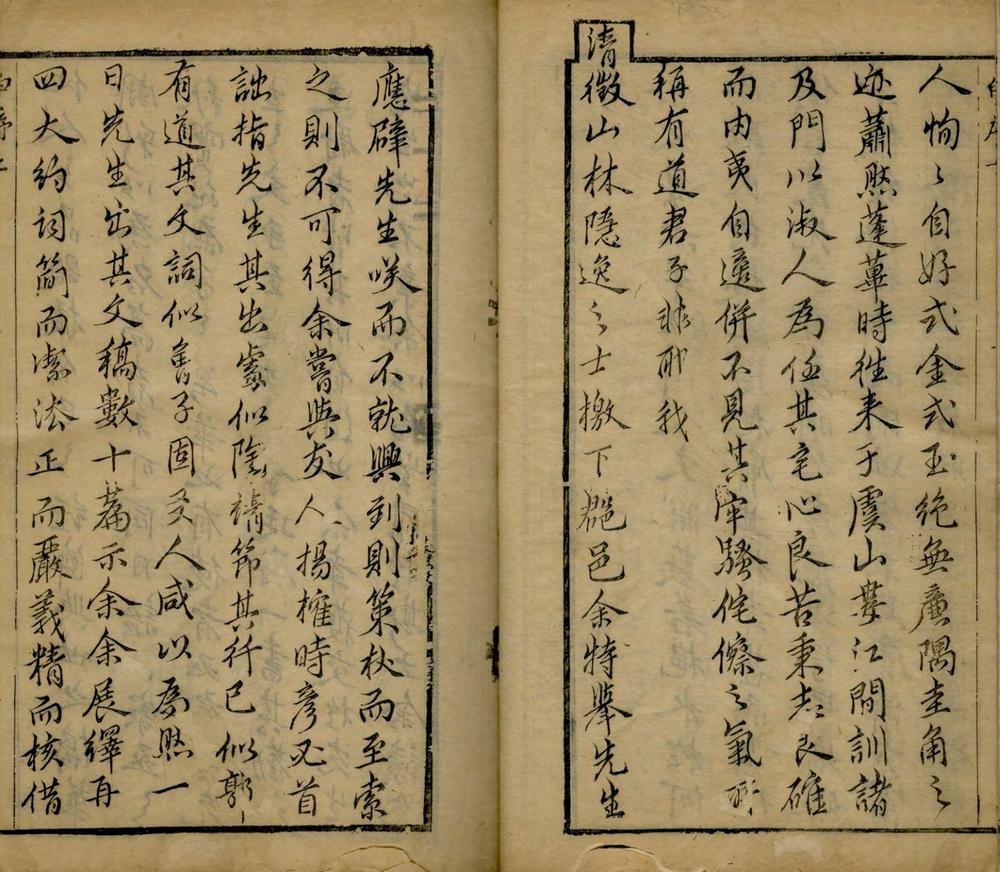 人恂〻自好式金式玉絶無廉隅圭角之
迹蕭然蓬蓽時往来于虞山婁江間訓諸
及門以淑人為任其宅心良苦秉志良確
而由夷自適併不見其牢騷侘傺之氣所
稱有道君子非耶我
清徵山林隱逸之士檄下郡邑余特舉先生
應辟先生咲而不就興到則策杖而至索
之則不可得余嘗與友人揚搉時彦必首
詘指先生其出處似陶靖節其行已似郭
有道其文詞似曾子固友人咸以為然一
日先生出其文稿數十篇示余余展繹再
四大約詞簡而潔法正而嚴義精而核借